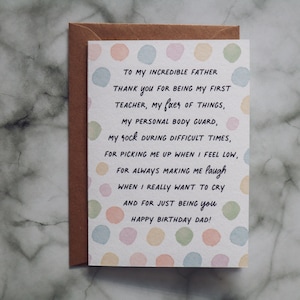 TO MY INCREDIBLE FATHER
THANK YOU FOR BEING MY FIRST
TEACHER, MY fixer OF THINGS,
MY PERSONAL BODY GUARD,
MY rock DURING DIFFICULT TIMES,
FOR PICKING ME UP WHEN I FEEL LOW,
FOR ALWAYS MAKING ME laugh
WHEN I REALLY WANT TO CRY
AND FOR JUST BEING you
HAPPY BIRTHDAY DAD!